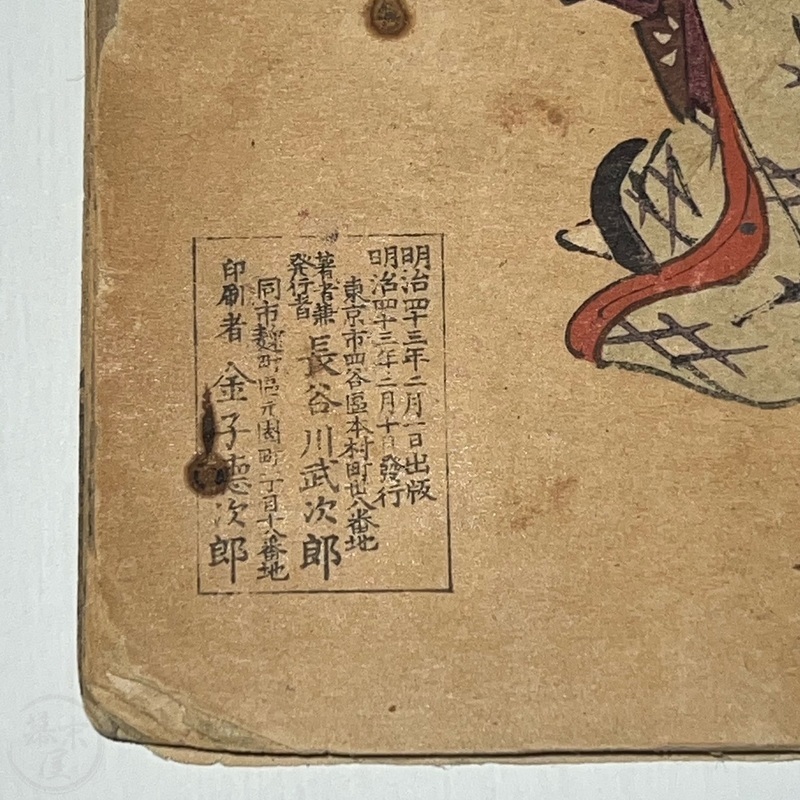 明治四十三年二月一日出版
明治四十三年二月十日發行
東京市四谷區本村町廿八番地
著者兼
発行者
長谷川武次郎
同市麹町區元園町一丁目十八番地
印刷者 金子徳次郎